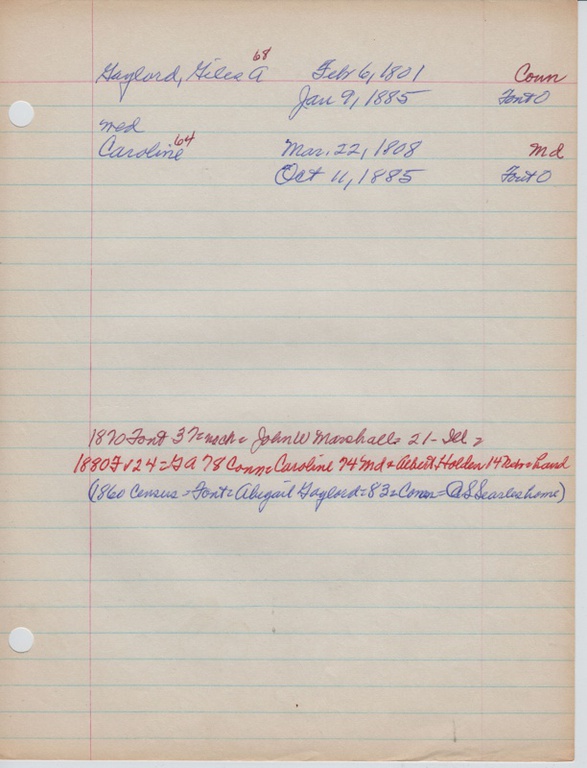 68
Gaylord, Giles A Feb 6, 1801 Conn
Jan 9, 1885 Font O
wed
Caroline 64 Mar. 22, 1808 Md
Oct 11, 1885 Font O
1870 Font 37 = = John W Marshall = 21 - Ill =
1880 F V 24 = G A 78 Conn = Caroline 74 Md = Albert Holden 14 = hand
(1860 Census = Font = Abigail Gaylord = 83 = Conn = @ S Searles home)